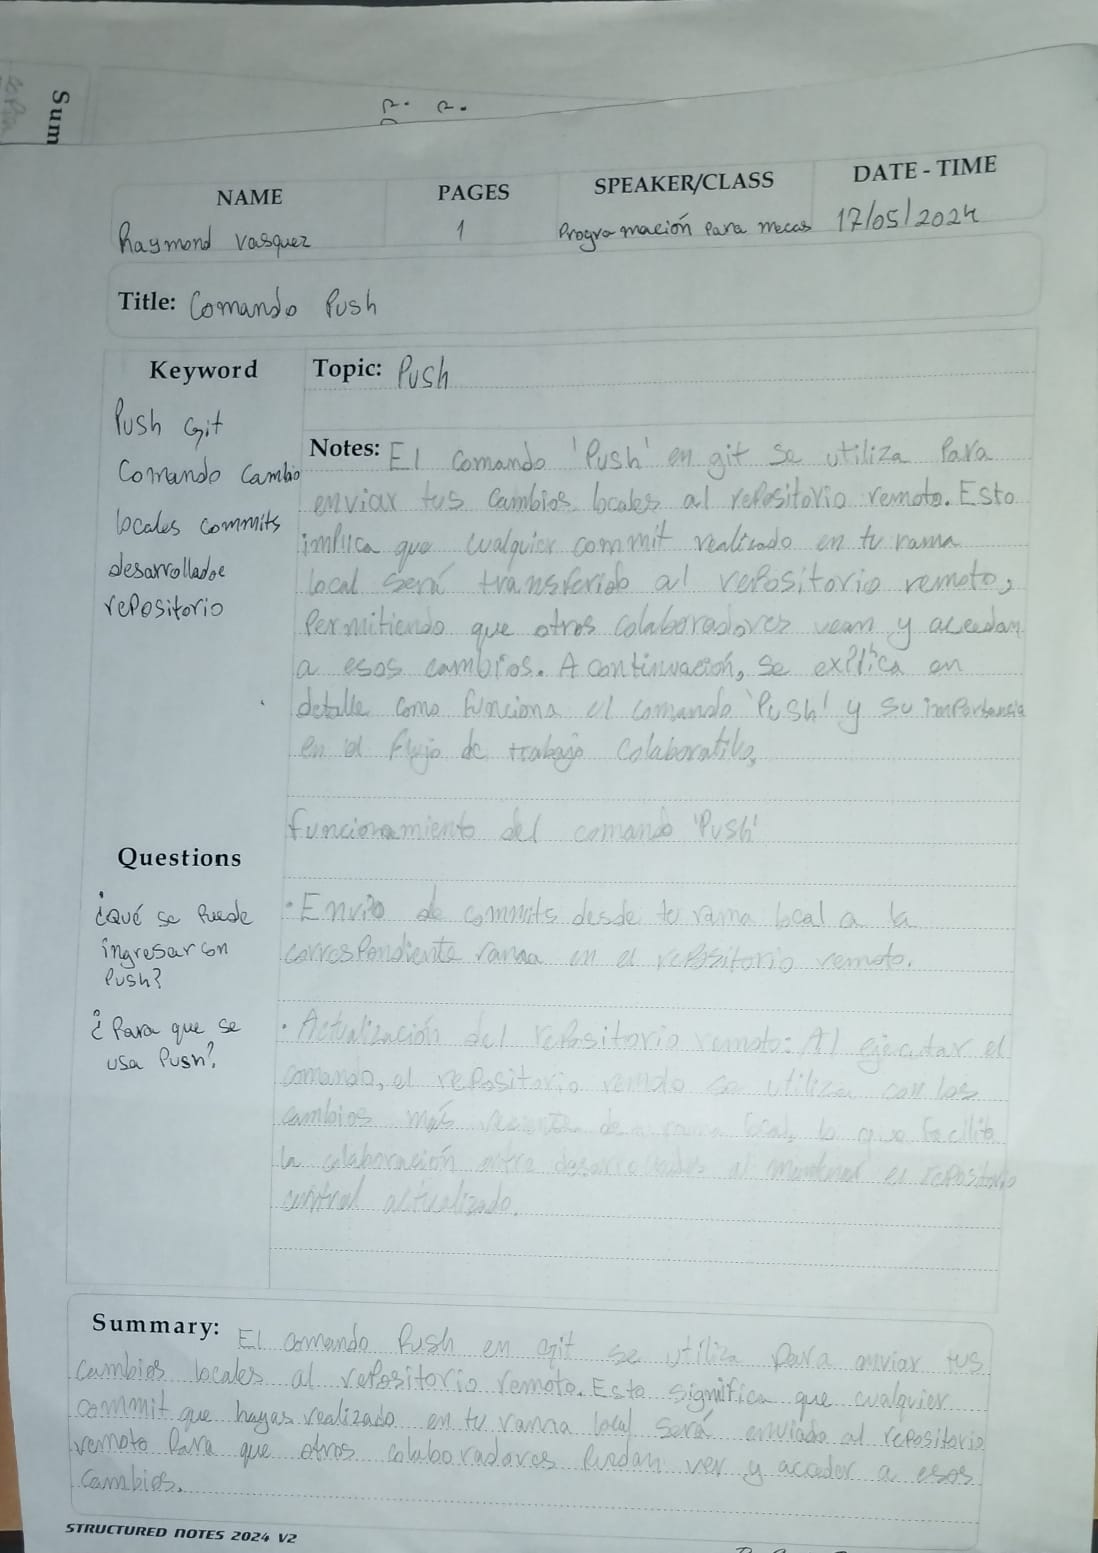 Sum
NAME
PAGES
SPEAKER/CLASS
DATE - TIME
Raymond Vasquez
1
Programación Para mecas
17/05/2024
Title: Comando Push
Keyword
Push Git
Comando Cambio
locales commits
desarrollador
repositorio
Topic: Push
Notes: El comando 'Push' en git se utiliza Para
enviar tus Cambios locales al repositorio remoto. Esto
implica que cualquier commit realizado en tu rama
local será transferido al repositorio remoto,
Permitiendo que otros colaboradores vean y accedan
a esos cambios. A continuación, se explica en
detalle como funciona el comando 'Push' y su importancia
en el flujo de trabajo Colaborativo.
funcionamiento del comando 'Push'
Questions
¿Qué se Puede
ingresar con
Push?
¿Para que se
usa Push?
· Envío de commits desde tu rama local a la
correspondiente rama en el repositorio remoto.
· Actualización del repositorio remoto: Al ejecutar el
comando, el repositorio remoto se utiliza con los
cambios más de rama local, lo que facilita
la colaboración entre al mantener el repositorio
central actualizado.
Summary: El comando Push en git se utiliza para enviar tus
Cambios locales al repositorio remoto. Esto significa que cualquier
commit que hayas realizado en tu rama local será enviado al repositorio
remoto Para que otros colaboradores Puedan ver y acceder a esos
cambios.
STRUCTURED NOTES 2024 V2